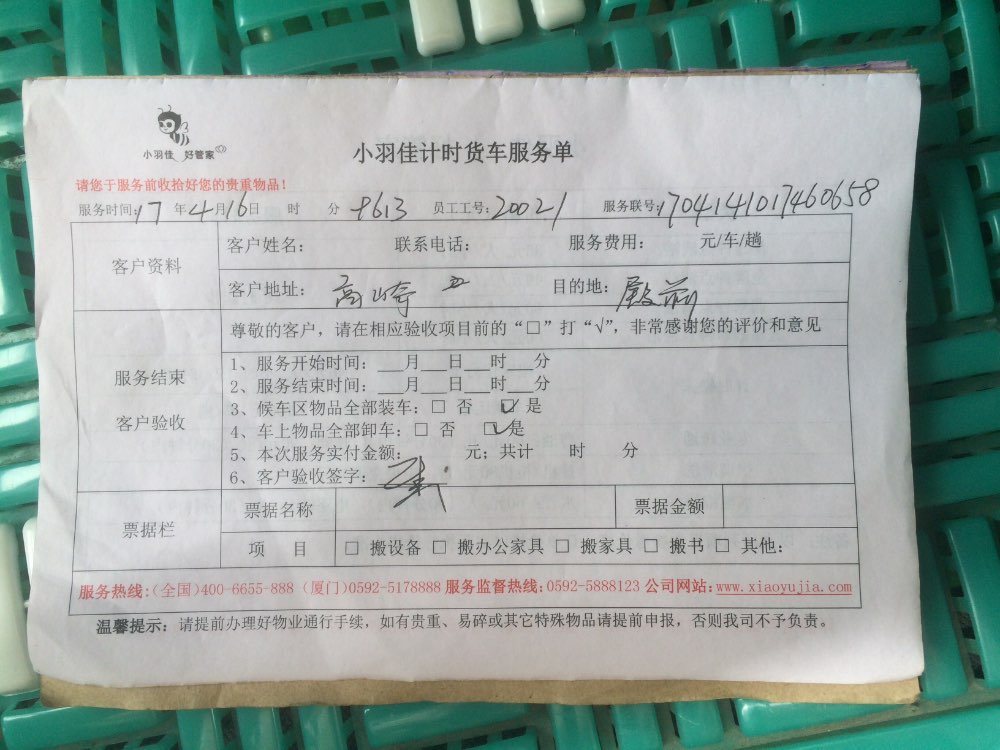 小羽佳 好管家
小羽佳计时货车服务单
请您于服务前收拾好您的贵重物品！
服务时间: 17 年 4 月 16 日 时 分 9613 员工工号: 20021 服务联号: 1704141017460658
客户资料
客户姓名： 联系电话： 服务费用： 元/车/趟
客户地址： 高崎 目的地： 殿前
服务结束
客户验收
尊敬的客户，请在相应验收项目前的“□”打“√”，非常感谢您的评价和意见
1、服务开始时间：___月___日___时___分
2、服务结束时间：___月___日___时___分
3、候车区物品全部装车：□ 否 ☑ 是
4、车上物品全部卸车：□ 否 ☑ 是
5、本次服务实付金额： 元；共计 时 分
6、客户验收签字：
票据栏
票据名称 票据金额
项 目 □ 搬设备 □ 搬办公家具 □ 搬家具 □ 搬书 □ 其他：
服务热线:(全国)400-6655-888 (厦门)0592-5178888 服务监督热线:0592-5888123 公司网站:www.xiaoyujia.com
温馨提示：请提前办理好物业通行手续，如有贵重、易碎或其它特殊物品请提前申报，否则我司不予负责。